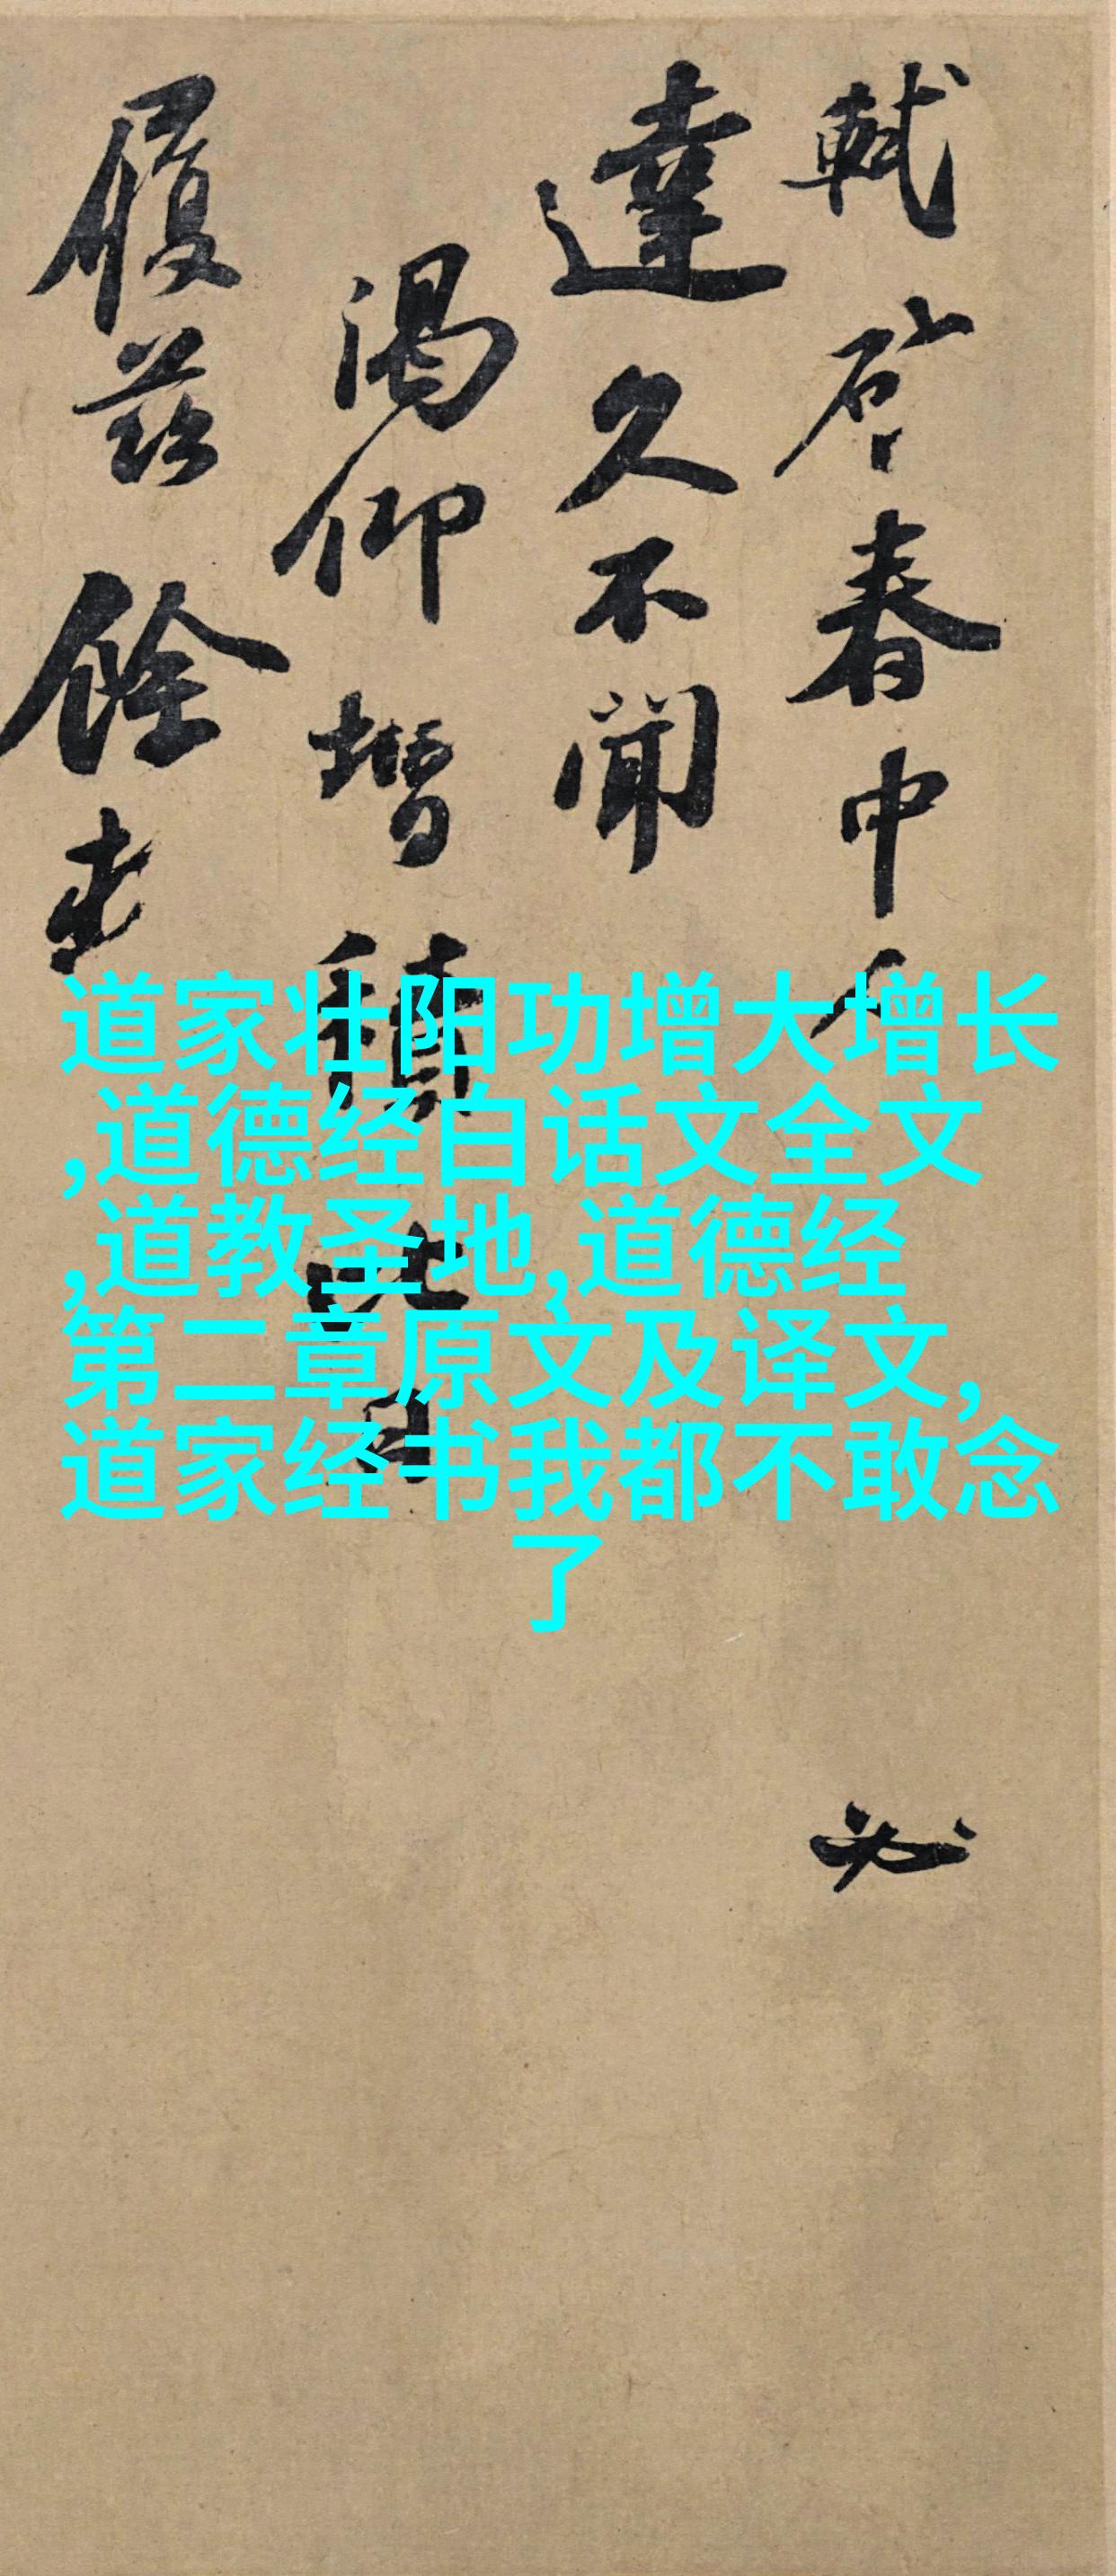 軾啓春中人必
達久不聞
渴仰增積比日
履茲餘
道家壮阳功增大增长
,道德经白话文全文
,道教圣地,道德经
第二章原文及译文,
道家经书我都不敢念
了